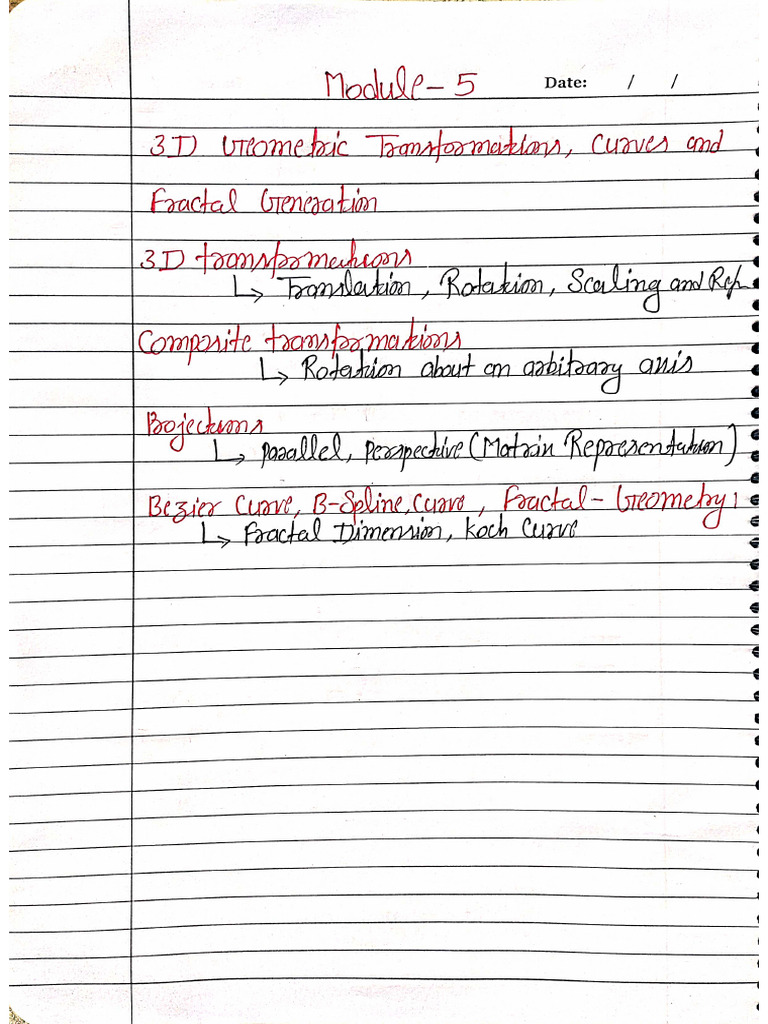 Module-5 Date: / /
3D Geometric Transformations, Curves and
Fractal Generation
3D transformations
↳ Translation, Rotation, Scaling and Ref
Composite transformations
↳ Rotation about an arbitrary axis
Projections
↳ parallel, perspective (Matrix Representation)
Bezier Curve, B-Spline, Curve, Fractal-Geometry:
↳ Fractal Dimension, Koch Curve